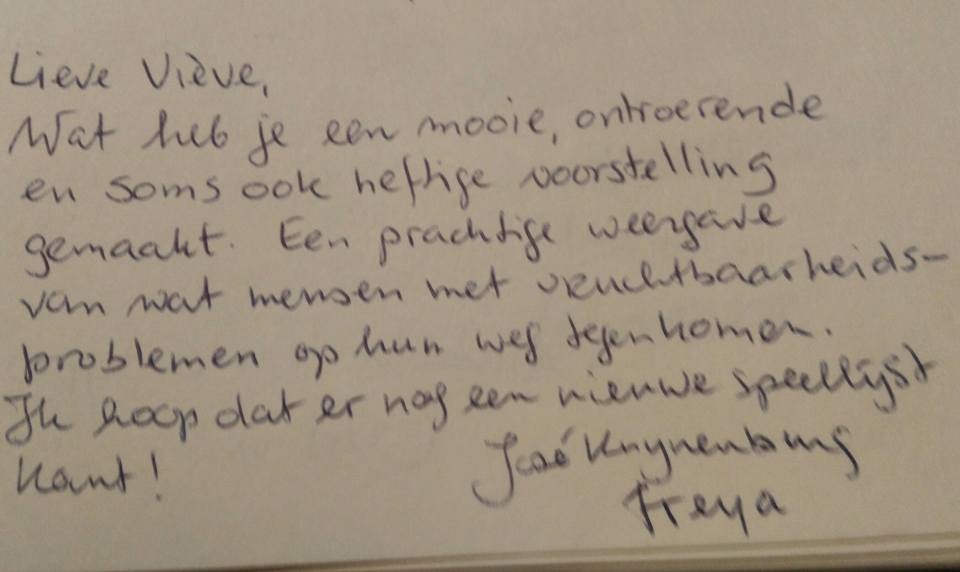 Lieve Viève,
Wat heb je een mooie, ontroerende
en soms ook heftige voorstelling
gemaakt. Een prachtige weergave
van wat mensen met vruchtbaarheids-
problemen op hun weg tegenkomen.
Ik hoop dat er nog een nieuwe speellijst
komt!
José Knijnenburg
Freya